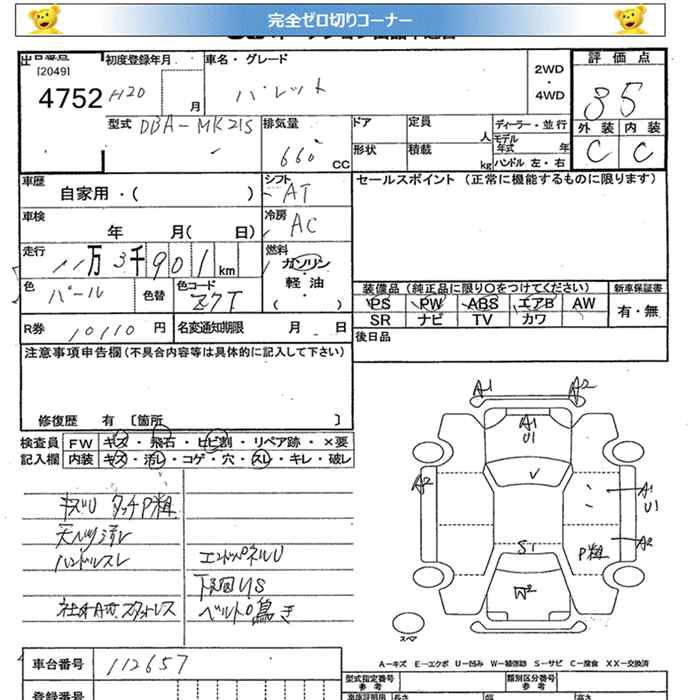 完全ゼロ切りコーナー
[2049]
4752
初度登録年月
H20
月
車名・グレード
パレット
2WD
・
4WD
評価点
35
外装 内装
C C
型式 DBA-MK21S
排気量
660
CC
ドア
定員
人
ディーラー・並行
モデル
年式
年
形状
積載
kg
ハンドル 左・右
車歴
自家用・( )
シフト
AT
セールスポイント (正常に機能するものに限ります)
車検
年 月( 日)
冷房
AC
走行
11万3千901km
燃料
ガソリン
・
軽油
・
( )
色 パール
色替
色コード
Z7T
装備品 (純正品に限り○をつけてください)
新車保証書
PS PW ABS エアB AW
SR ナビ TV カワ
有・無
R券 10110 円
名変通知期限 月 日
後日品
注意事項申告欄 (不具合内容等は具体的に記入して下さい)
修復歴 有 〔箇所 〕
検査員 FW キズ・飛石・ヒビ割・リペア跡・×要
記入欄 内装 キズ・汚レ・コゲ・穴・スレ・キレ・破レ
キズU タッチP粗
天ハツリ汚レ
ハンドルスレ
エンドパネルU
下回りS
ベルト鳴き
A1 A2
A1
U1
V
A2
A1
U1
S1
P粗
A2
W2
スペア
A-キズ E-エクボ U-凹み W-補修跡 S-サビ C-腐食 XX-交換済
車台番号 112657
登録番号
型式指定番号
参考
類別区分番号
参考
長さ 幅 高さ